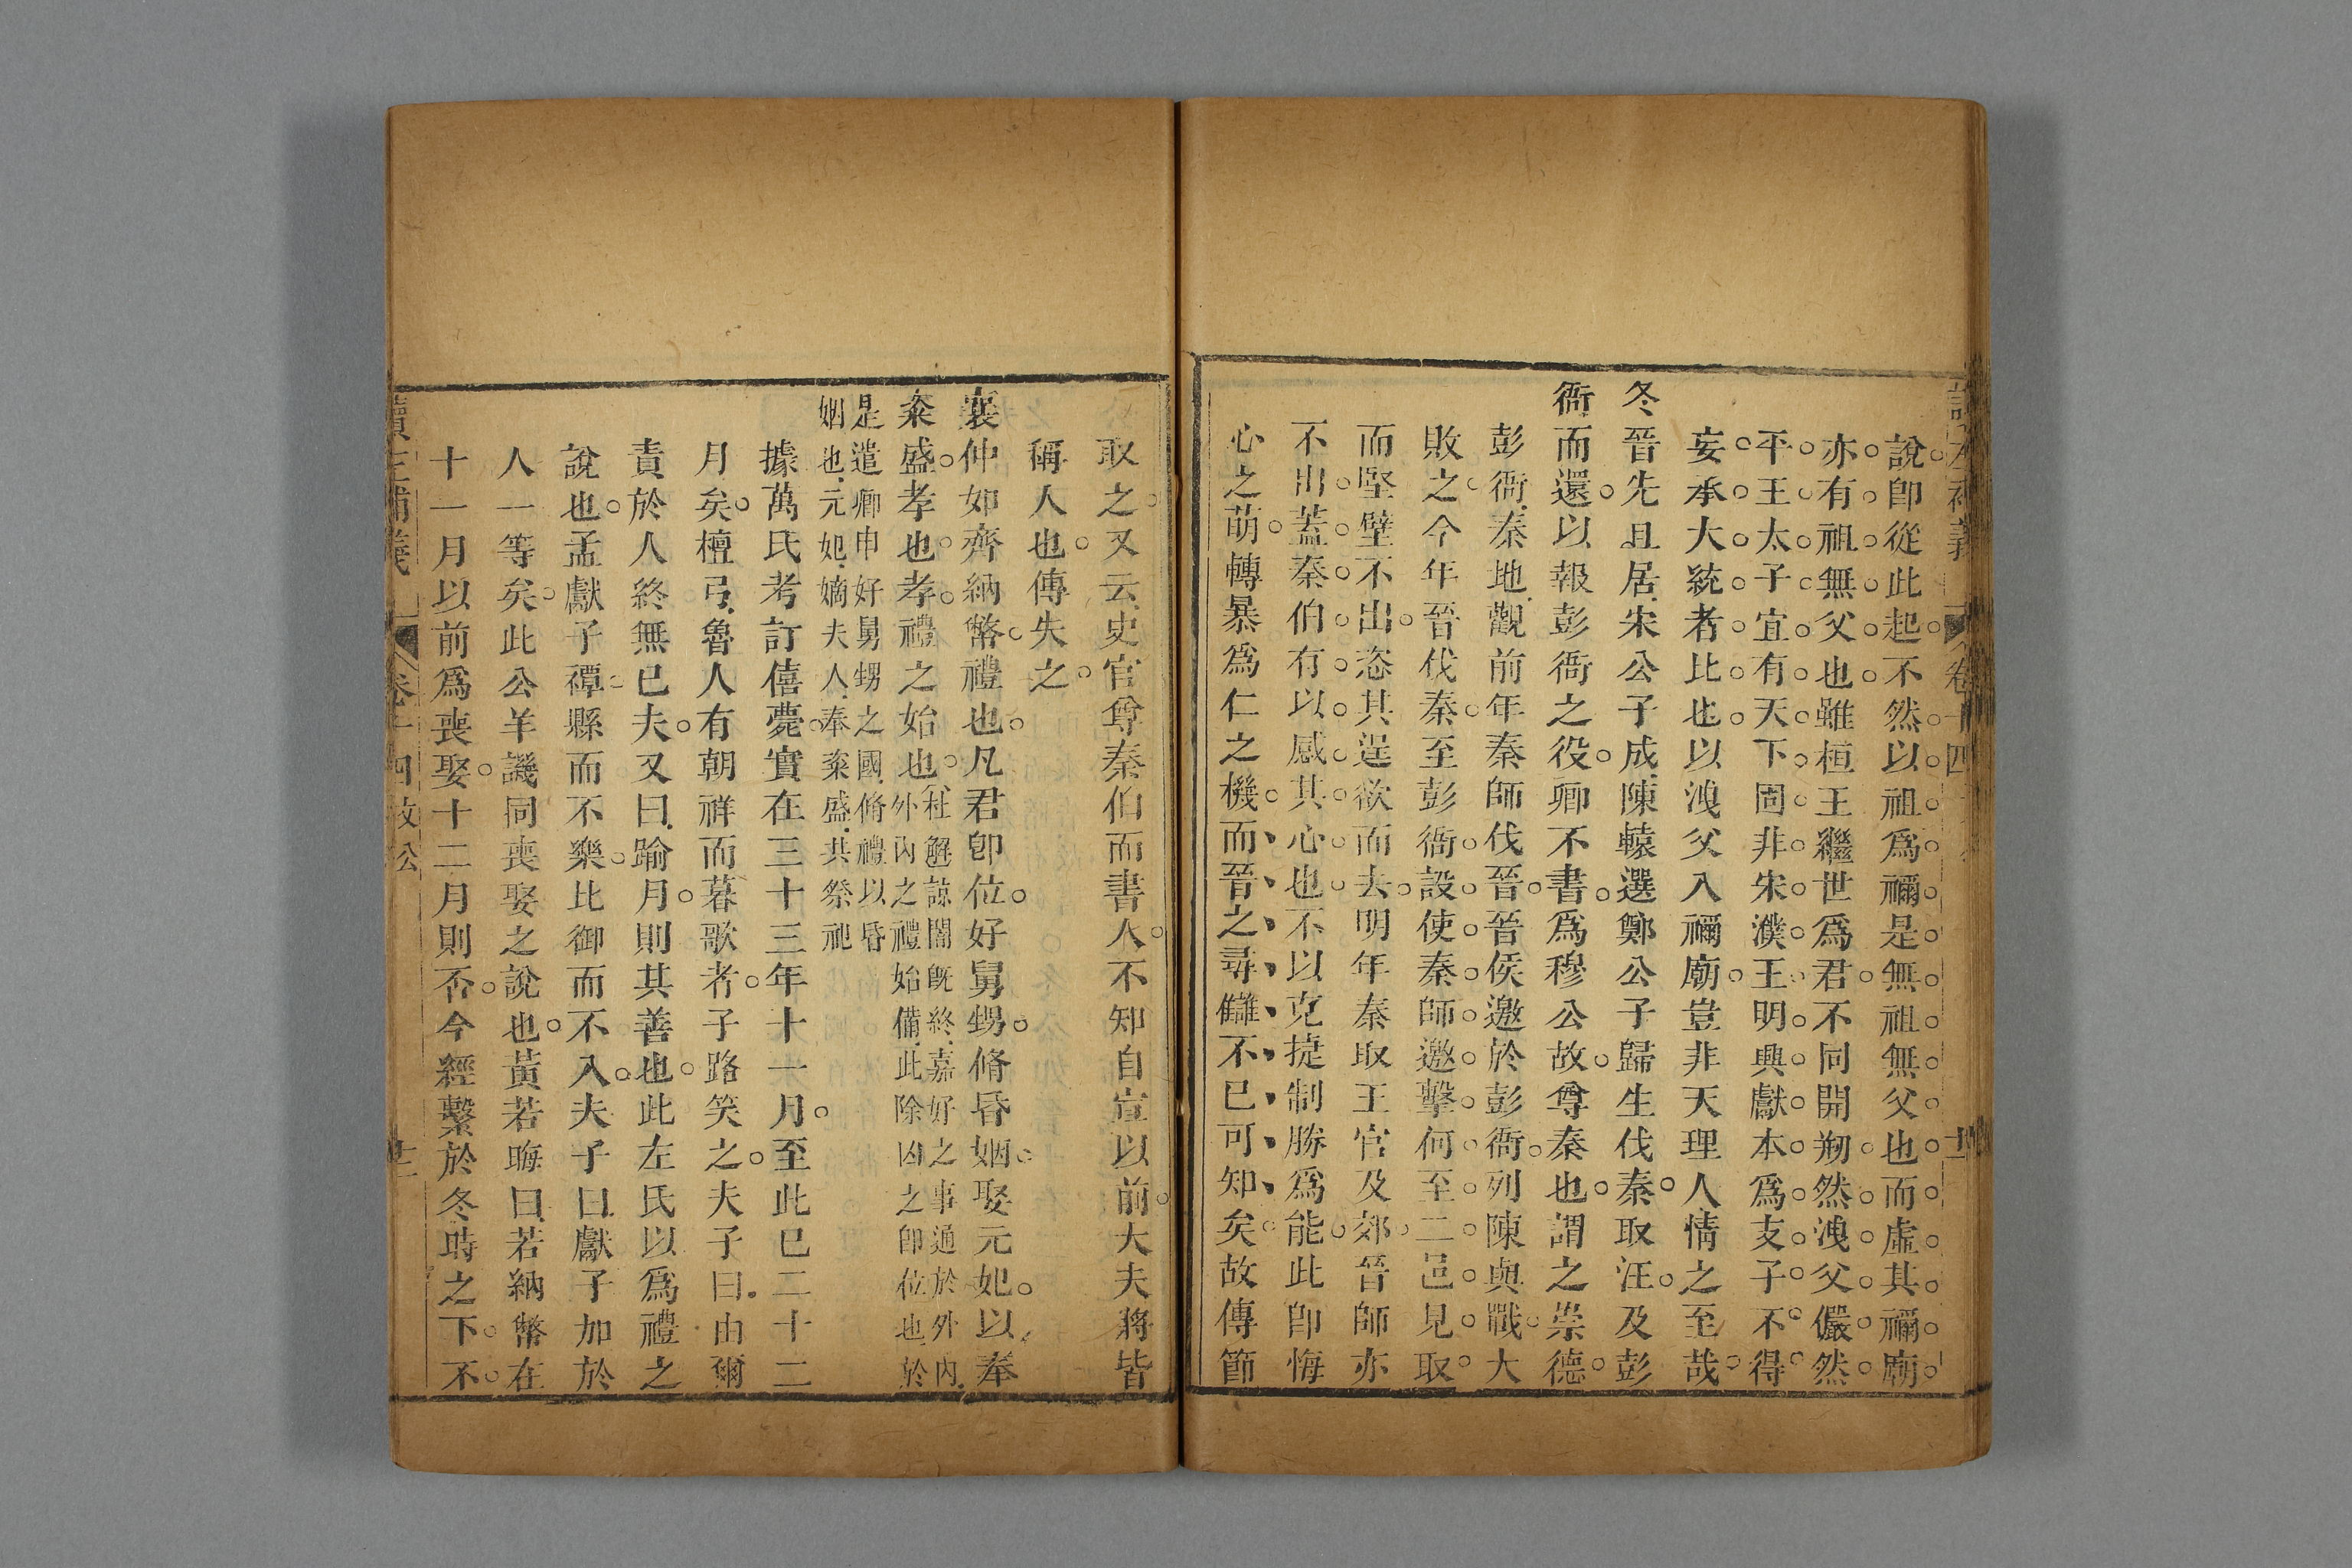 說卽從此起不然以祖爲禰是無祖無父也而虛其禰廟
亦有祖無父也雖桓王繼世爲君不同開剏然洩父儼然
平王太子宜有天下固非宋濮王明興獻本爲支子不得
妄承大統者比也以洩父入禰廟豈非天理人情之至哉
冬晉先且居宋公子成陳轅選鄭公子歸生伐秦取汪及彭
衙而還以報彭衙之役卿不書爲穆公故尊秦也謂之崇德
彭衙秦地觀前年秦師伐晉晉侯邀於彭衙列陳與戰大
敗之今年晉伐秦至彭衙設使秦師邀擊何至二邑見取
而堅壁不出恣其逞欲而去明年秦取王官及郊晉師亦
不出蓋秦伯有以感其心也不以克捷制勝爲能此卽悔
心之萌轉暴爲仁之機而晉之尋讎不已可知矣故傳節
取之又云史官尊秦伯而書人不知自宣以前大夫將皆
稱人也傳失之
襄仲如齊納幣禮也凡君卽位好舅甥脩昏姻娶元妃以奉
粢盛孝也孝禮之始也杜解諒闇旣終嘉好之事通於外內
外內之禮始備此除凶之卽位也於
是遣卿申好舅甥之國脩禮以昏
姻也元妃嫡夫人奉粢盛共祭祀
據萬氏考訂僖薨實在三十三年十一月至此已二十二
月矣檀弓魯人有朝祥而暮歌者子路笑之夫子曰由爾
責於人終無已夫又曰踰月則其善也此左氏以爲禮之
說也孟獻子禫縣而不樂比御而不入夫子曰獻子加於
人一等矣此公羊譏同喪娶之說也黃若晦曰若納幣在
十一月以前爲喪娶十二月則否今經繫於冬時之下不
讀左補義
卷十四文公